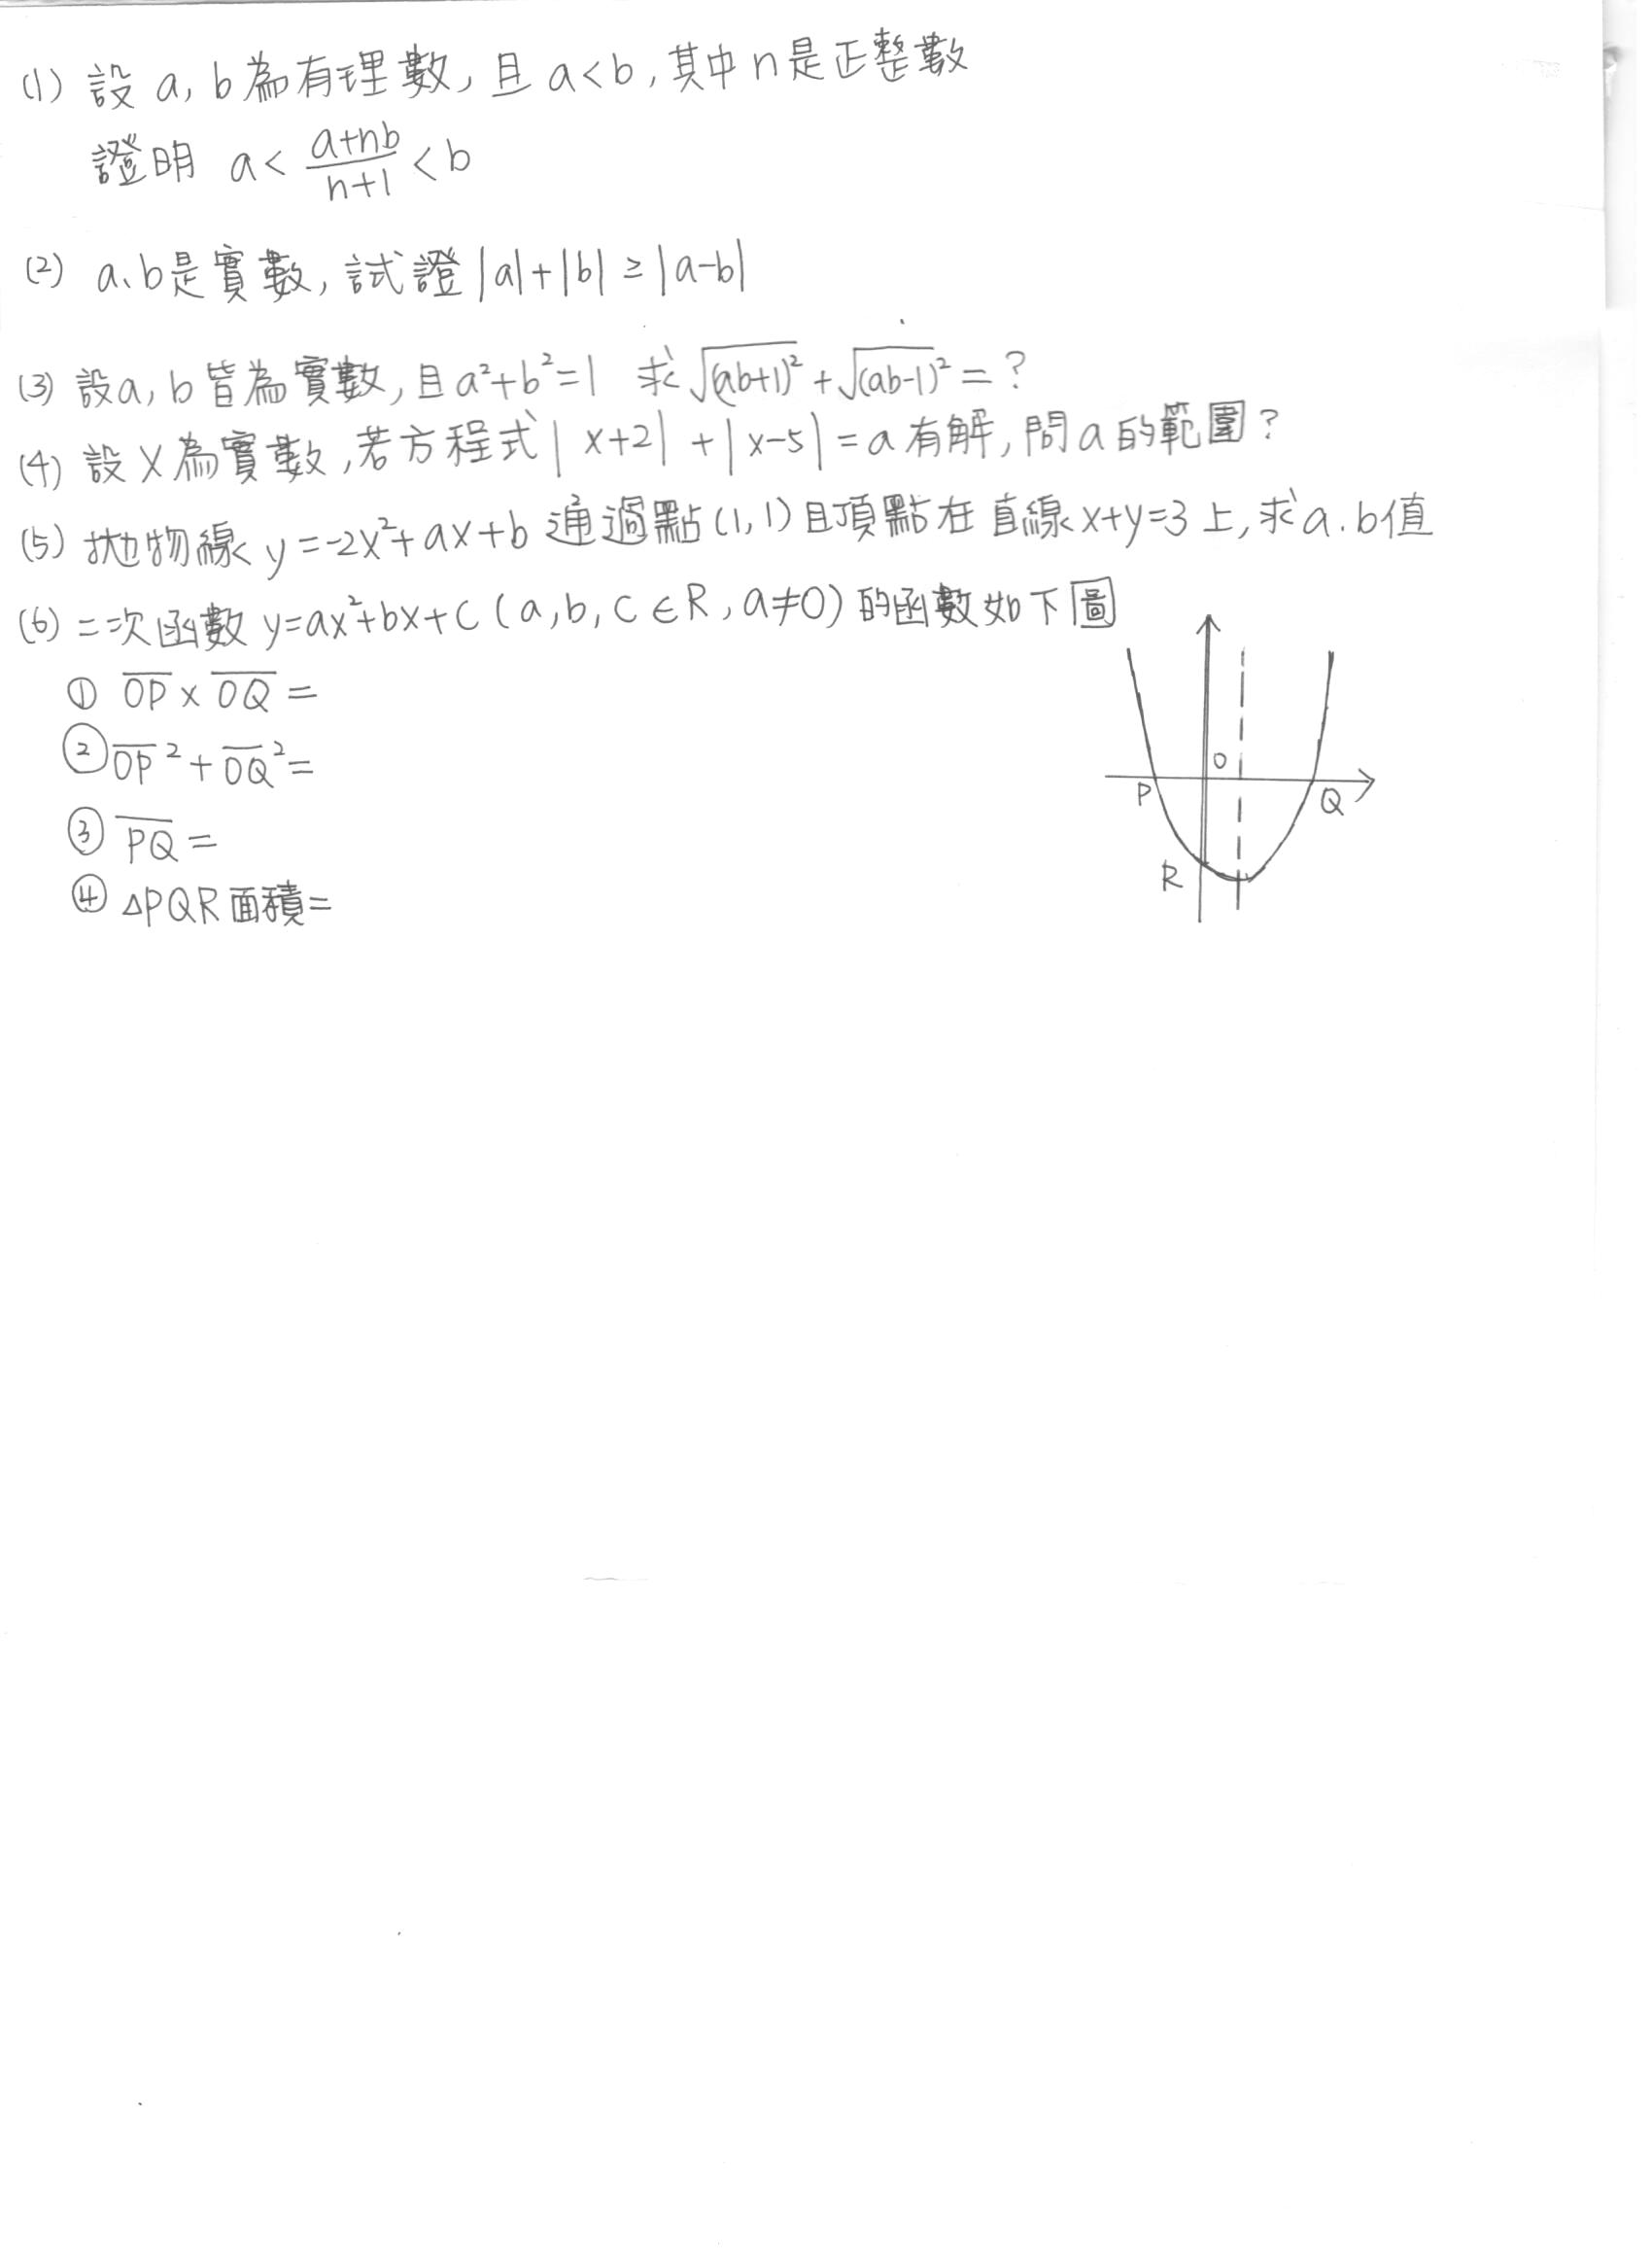 (1) 設 a, b 為有理數, 且 a<b, 其中 n 是正整數
證明 a < \frac{a+nb}{n+1} < b
(2) a、b是實數, 試證 |a|+|b| ≥ |a-b|
(3) 設a, b 皆為實數, 且 a²+b²=1 求 \sqrt{(ab+1)²} + \sqrt{(ab-1)}² = ?
(4) 設 X 為實數, 若方程式 | x+2| + |x-5| = a 有解, 問 a 的範圍?
(5) 拋物線 y=-2x²+ax+b 通過點(1,1)且頂點在直線x+y=3上, 求a.b值
(6) 二次函數 y=ax²+bx+c (a,b,c∈R, a≠0) 的函數如下圖
① \overline{OP} × \overline{OQ} =
② \overline{OP}² + \overline{OQ}² =
③ \overline{PQ} =
④ △PQR 面積=
O
P
Q
R